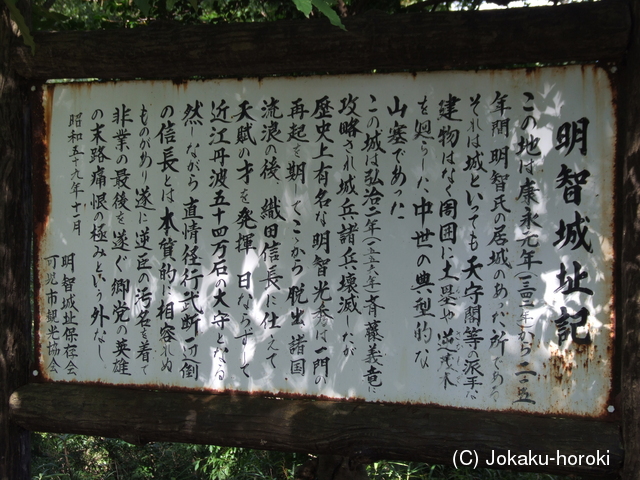 明智城址記
この地は康永元年(一三四二年)から二百五
年間 明智氏の居城のあった所である
それは城といっても天守閣等の派手な
建物はなく周囲に土塁や
を廻らした中世の典型的な
山塞であった
この城は弘治二年(一五五六年)斉藤義竜に
攻略され城兵諸兵壊滅したが
歴史上有名な明智光秀は一門の
再起を期してここから脱出諸国
流浪の後、織田信長に仕えて
天賦の才を発揮 日ならずして
近江丹波五十四万石の太守となる
然しながら直情径行武断一倒
の信長とは本質的に相容れぬ
ものがあり遂に逆臣の汚名を着て
非業の最後を遂ぐ郷党の英雄
の末路痛恨の極みという外なし
昭和五十九年十一月
明智城址保存会
可児市観光協会
(C) Jokaku-horoki